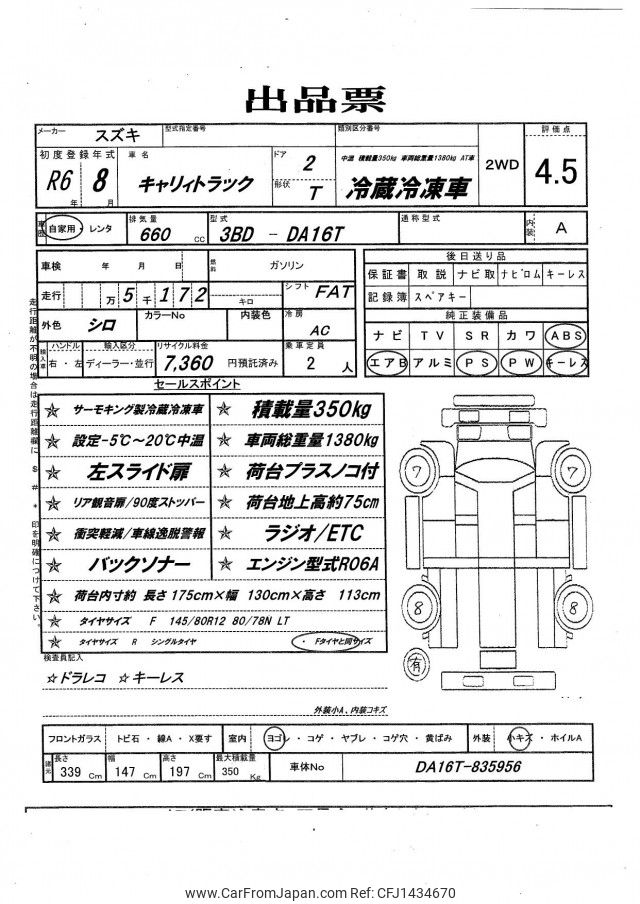 出品票
メーカー スズキ 型式指定番号 類別区分番号 評価点
初度登録年式 車名 ドア 2 中温 積載量350kg 車両総重量1380kg AT車 2WD 4.5
R6 年 8 月 キャリィトラック 形状 T 冷蔵冷凍車
車歴 自家用・レンタ 排気量 660 CC 型式 3BD - DA16T 通称型式 内装 A
車検 年 月 日 燃料 ガソリン
走行 万 5 千 1 7 2 キロ シフト FAT
外色 シロ カラーNo 内装色 冷房 AC
輸入車 ハンドル 右・左 輸入区分 ディーラー・並行 リサイクル料金 7,360 円預託済み 乗車定員 2 人
後日送り品
保証書 取説 ナビ取 ナビロム キーレス
記録簿 スペアキー
純正装備品
ナビ TV SR カワ ABS
エアB アルミ PS PW キーレス
走行距離が不明の場合は走行距離欄に $ # * 印を明確につけて下さい。
セールスポイント
☆ サーモキング製冷蔵冷凍車 ☆ 積載量350kg
☆ 設定-5℃~20℃中温 ☆ 車両総重量1380kg
☆ 左スライド扉 ☆ 荷台プラスノコ付
☆ リア観音扉/90度ストッパー ☆ 荷台地上高約75cm
☆ 衝突軽減/車線逸脱警報 ☆ ラジオ/ETC
☆ バックソナー ☆ エンジン型式R06A
☆ 荷台内寸約 長さ 175cm×幅 130cm×高さ 113cm
☆ タイヤサイズ F 145/80R12 80/78N LT
☆ タイヤサイズ R シングルタイヤ ・Fタイヤと同サイズ
7 7
8 8
有
検査員記入
☆ドラレコ ☆キーレス
外装小A、内装コキズ
フロントガラス トビ石・線A・X要す 室内 ヨゴレ・コゲ・ヤブレ・コゲ穴・黄ばみ 外装 小キズ・ホイルA
諸元 長さ 339 Cm 幅 147 Cm 高さ 197 Cm 最大積載量 350 Kg 車体No DA16T-835956
www.CarFromJapan.com Ref: CFJ1434670